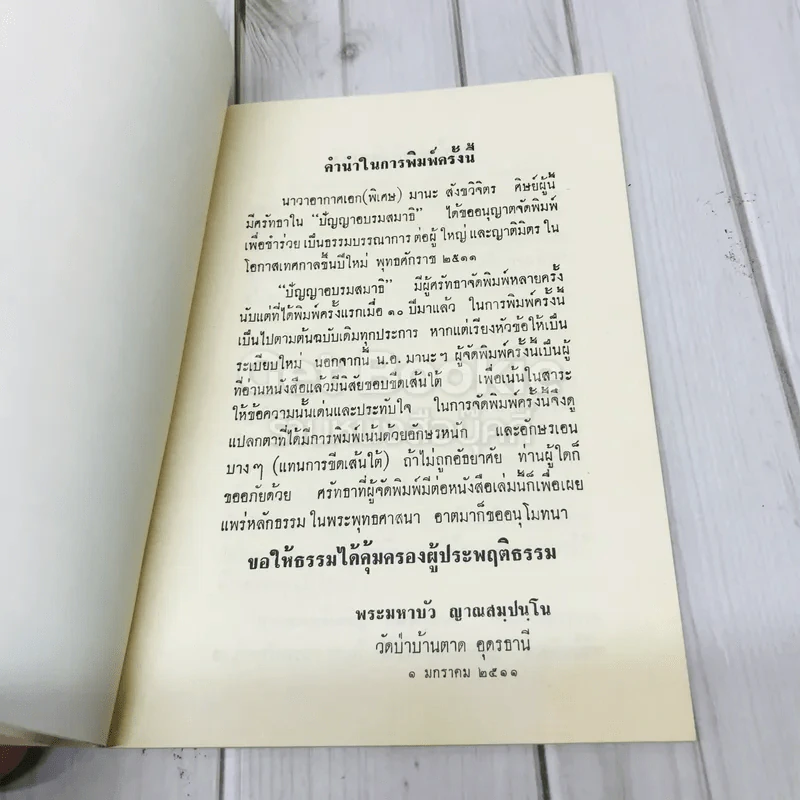 คำนำในการพิมพ์ครั้งนี้
นาวาอากาศเอก(พิเศษ) มานะ สังขวิจิตร ศิษย์ผู้นี้
มีศรัทธาใน "ปัญญาอบรมสมาธิ" ได้ขออนุญาตจัดพิมพ์
เพื่อชำร่วย เป็นธรรมบรรณาการ ต่อผู้ใหญ่ และญาติมิตร ใน
โอกาสเทศกาลขึ้นปีใหม่ พุทธศักราช ๒๕๑๑
"ปัญญาอบรมสมาธิ" มีผู้ศรัทธาจัดพิมพ์หลายครั้ง
นับแต่ที่ได้พิมพ์ครั้งแรกเมื่อ ๑๐ ปีมาแล้ว ในการพิมพ์ครั้งนี้
เป็นไปตามต้นฉบับเดิมทุกประการ หากแต่เรียงหัวข้อให้เป็น
ระเบียบใหม่ นอกจากนี้ น.อ. มานะ ฯ ผู้จัดพิมพ์ครั้งนี้เป็นผู้
ที่อ่านหนังสือแล้วมีนิสัยชอบขีดเส้นใต้ เพื่อเน้นในสาระ
ให้ข้อความนั้นเด่นและประทับใจ ในการจัดพิมพ์ครั้งนี้จึงดู
แปลกตาที่ได้มีการพิมพ์เน้นด้วยอักษรหนัก และอักษรเอน
บาง ๆ (แทนการขีดเส้นใต้) ถ้าไม่ถูกอัธยาศัย ท่านผู้ใดก็
ขออภัยด้วย ศรัทธาที่ผู้จัดพิมพ์มีต่อหนังสือเล่มนี้ก็เพื่อเผย
แพร่หลักธรรม ในพระพุทธศาสนา อาตมาก็ขออนุโมทนา
ขอให้ธรรมได้คุ้มครองผู้ประพฤติธรรม
พระมหาบัว ญาณสมฺปนฺโน
วัดป่าบ้านตาด อุดรธานี
๑ มกราคม ๒๕๑๑